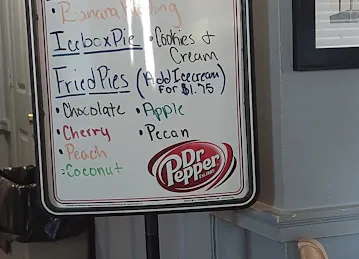 • Banana Pudding
Icebox Pie • Cookies &
Cream
Fried Pies (Add Icecream
for $1.75)
• Chocolate • Apple
• Cherry • Pecan
• Peach
• Coconut
Dr
Pepper